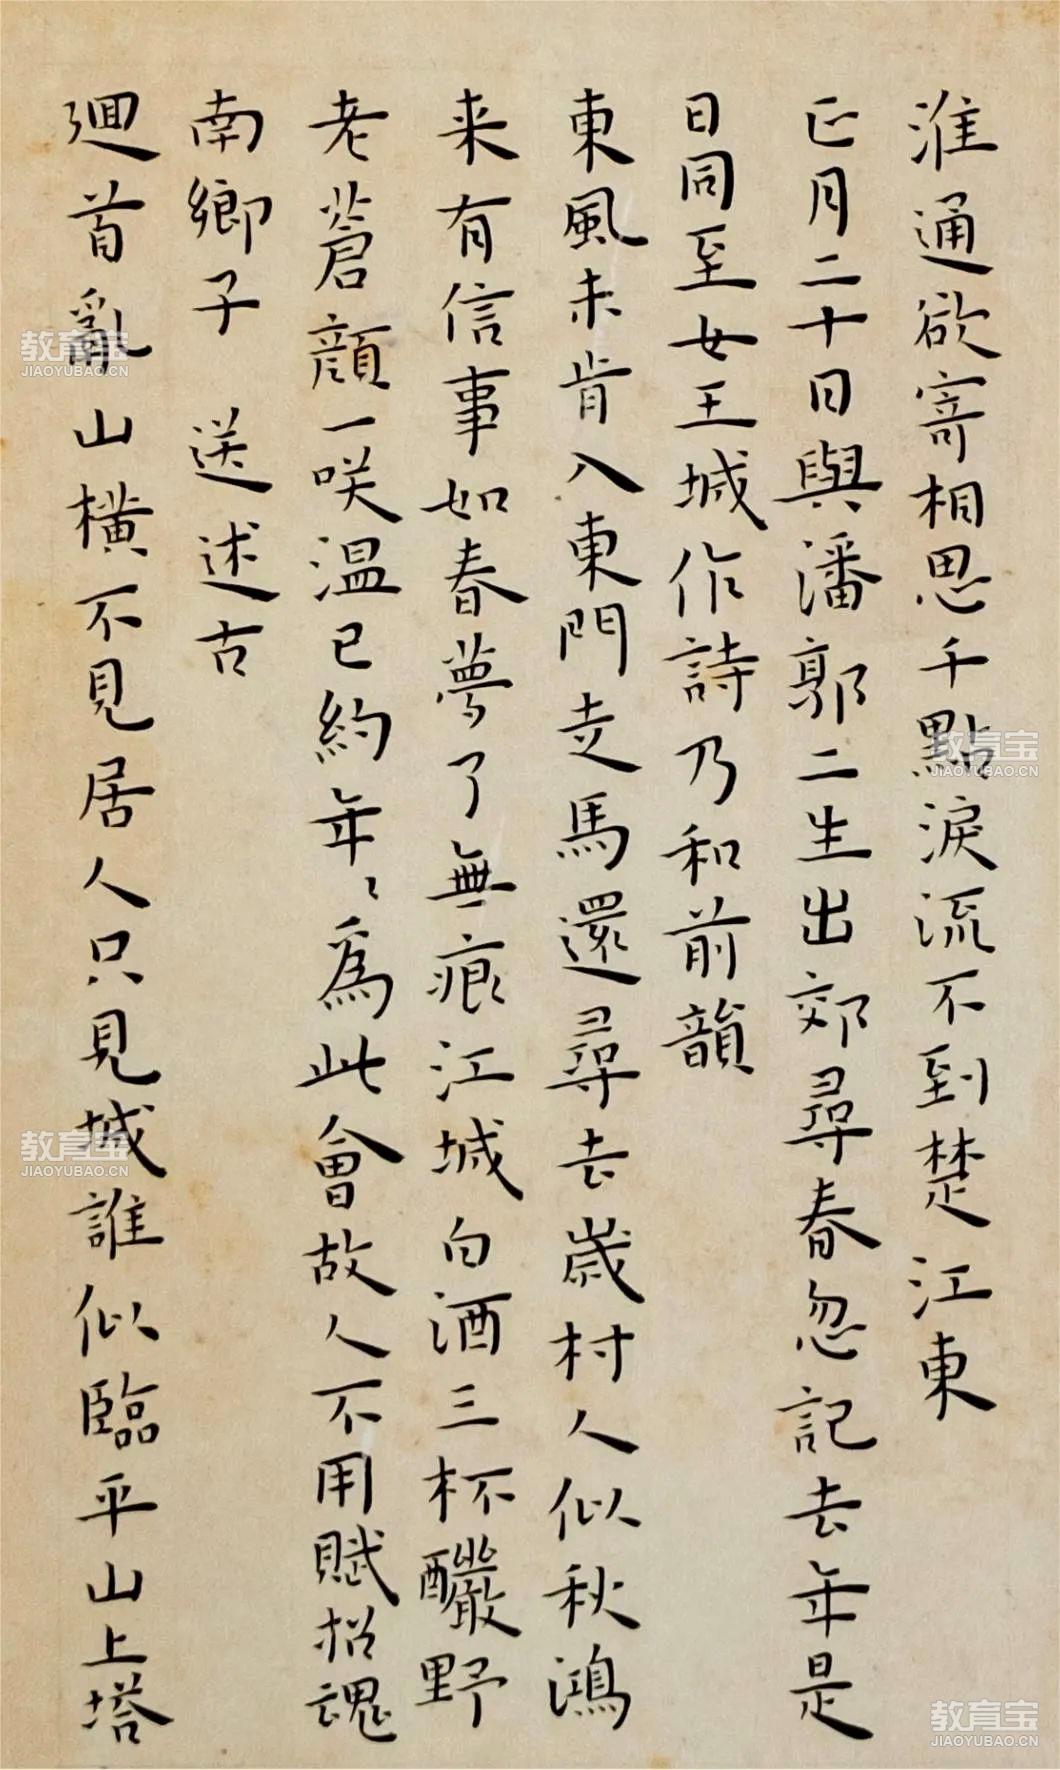 淮通欲寄相思千點淚流不到楚江東
正月二十日與潘郭二生出郊尋春忽記去年是
日同至女王城作詩乃和前韻
東風未肯入東門走馬還尋去歲村人似秋鴻
来有信事如春夢了無痕江城白酒三杯釅野
老蒼顔一咲温已約年〻為此會故人不用賦招魂
南鄉子 送述古
迴首亂山横不見居人只見城誰似臨平山上塔
教育宝
JIAOYUBAO.CN
教育宝
JIAOYUBAO.CN
教育宝
JIAOYUBAO.CN
教育宝
JIAOYUBAO.CN